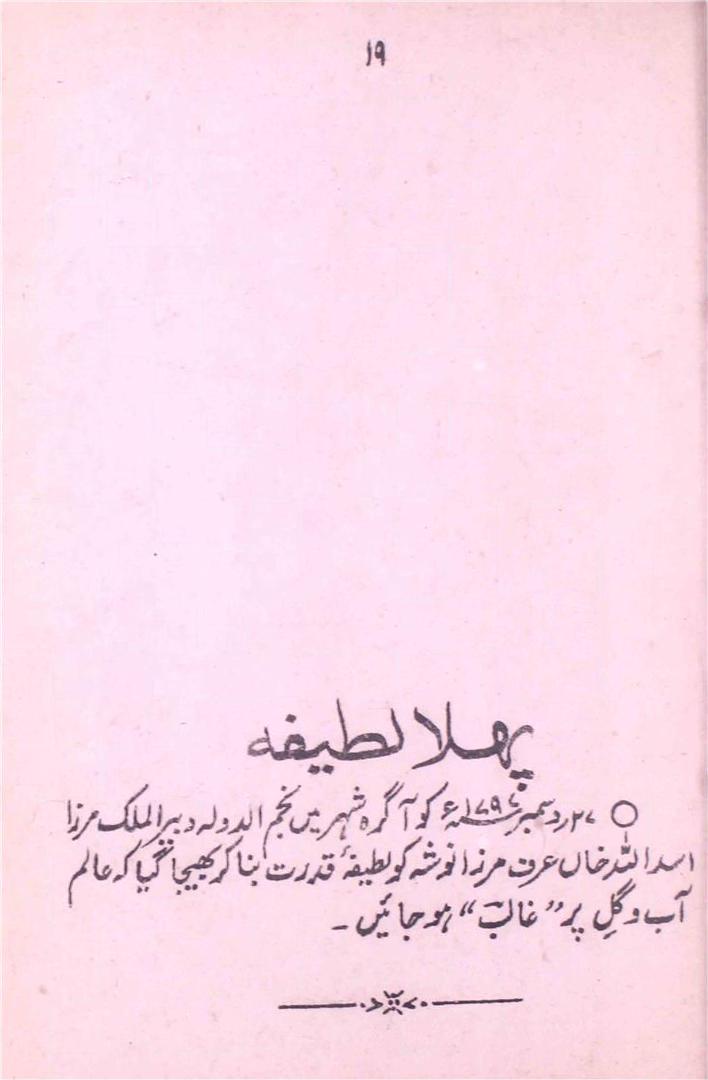 ۱۹
پہلا لطیفہ
○ ۲۷ر دسمبر ۱۷۹۷ء کو آگرہ شہر میں نجم الدولہ دبیر الملک مرزا
اسد اللہ خاں عرف مرزا نوشہ کو لطیفۂ قدرت بنا کر بھیجا گیا کہ عالم
آب و گِل پر ”غالبؔ“ ہو جائیں۔